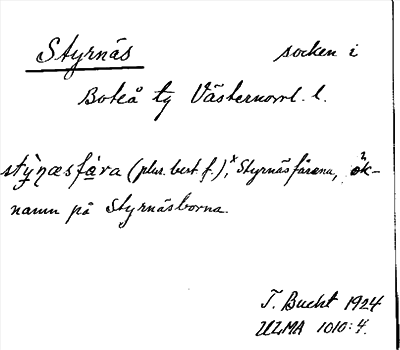 Styrnäs socken i
Boteå tg Västernorrl. l.
stỳṇæsfæ̀ra (plur. best. f.), ˣStyrnäsfårena, ök-
namn på Styrnäsborna.
T. Bucht 1924
ULMA 1010:4.